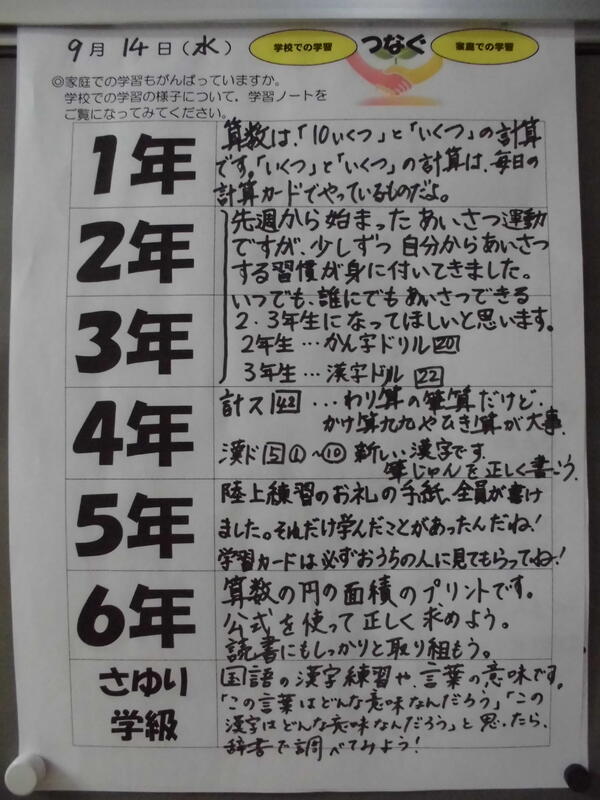 9月14日(水)
学校での学習 つなぐ 家庭での学習
◎家庭での学習もがんばっていますか。
学校での学習の様子について、学習ノートを
ご覧になってみてください。
1年
算数は、「10いくつ」と「いくつ」の計算
です。「いくつ」と「いくつ」の計算は、毎日の
計算カードでやっているものだよ。
2年
3年
先週から始まったあいさつ運動
ですが、少しずつ自分からあいさつ
する習慣が身に付いてきました。
いつでも、誰にでもあいさつできる
2.3年生になってほしいと思います。
2年生…かん字ドリル20
3年生…漢字ドリル22
4年
計ス42...わり算の筆算だけど、
かけ算九九やひき算が大事。
漢ド5①~⑩新しい漢字です。
筆じゅんを正しく書こう。
5年
陸上練習のお礼の手紙、全員が書け
ました。それだけ学んだことがあったんだね!
学習カードは必ずおうちの人に見てもらってね!
6年
算数の円の面積のプリントです。
公式を使って正しく求めよう。
読書にもしっかりと取り組もう。
さゆり
学級
国語の漢字練習や、言葉の意味です。
「この言葉はどんな意味なんだろう」「この
漢字はどんな意味なんだろう」と思ったら、
辞書で調べてみよう!